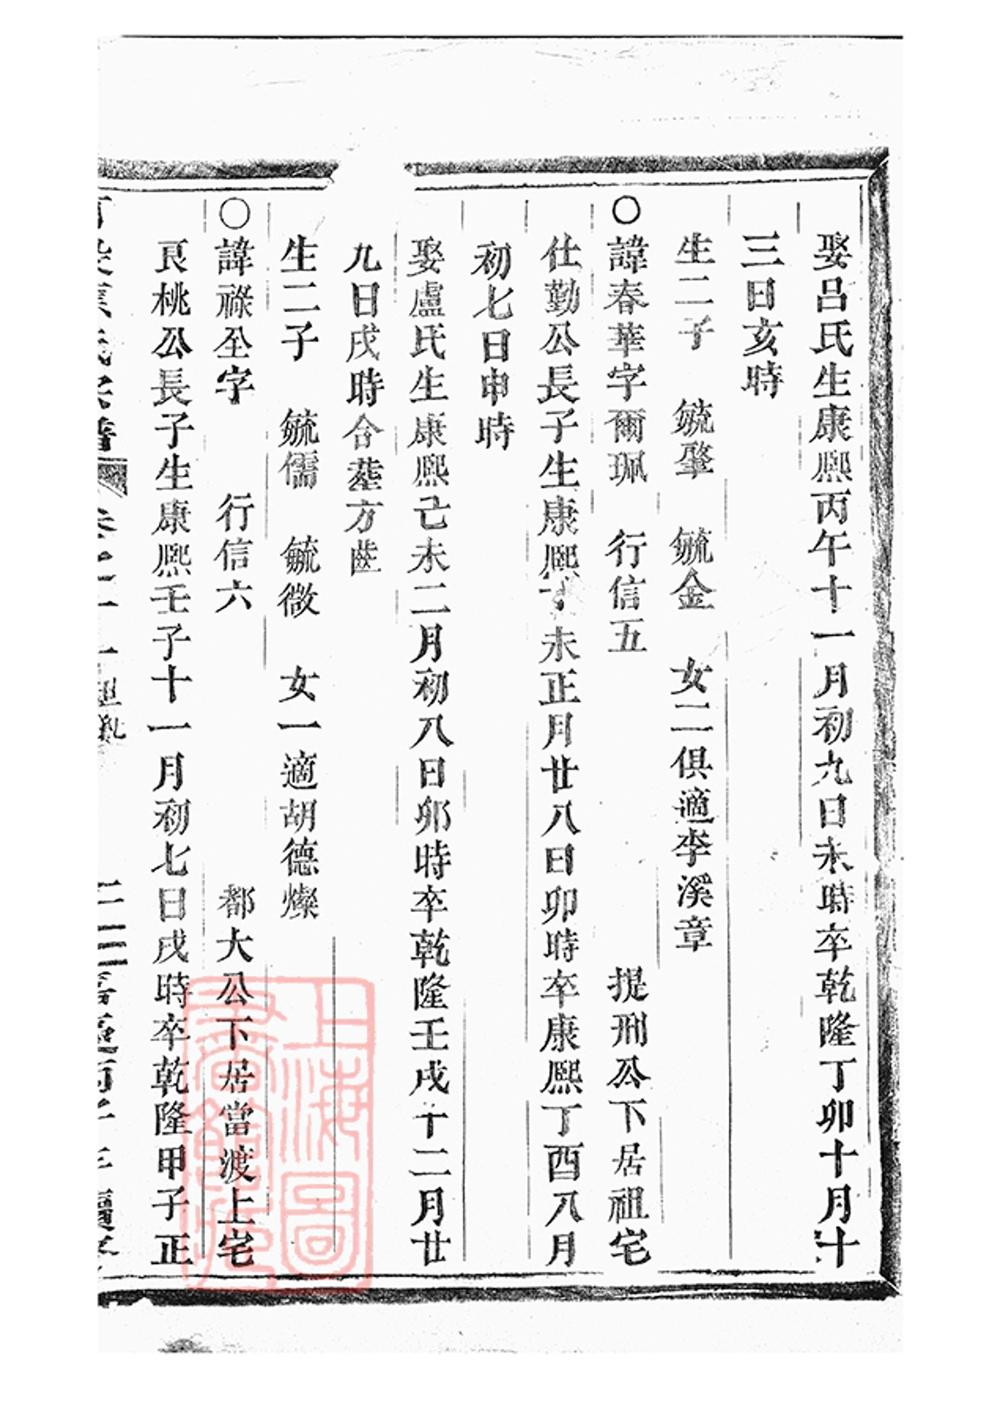 娶呂氏生康熙丙午十一月初九日未時卒乾隆丁卯十月十
三日亥時
生二子 毓肇 毓金 女二俱適李溪章
○諱春華字爾珮 行信五 提刑公下居祖宅
仕勤公長子生康熙丁未正月廿八日卯時卒康熙丁酉八月
初七日申時
娶盧氏生康熙己未二月初八日卯時卒乾隆壬戌十二月廿
九日戌時合塟方𡾋
生二子 毓儒 毓徵 女一適胡德燦
○諱祿全字 行信六 都大公下居當渡上宅
良桃公長子生康熙壬子十一月初七日戌時卒乾隆甲子正
氏宗譜
上海圖書館藏